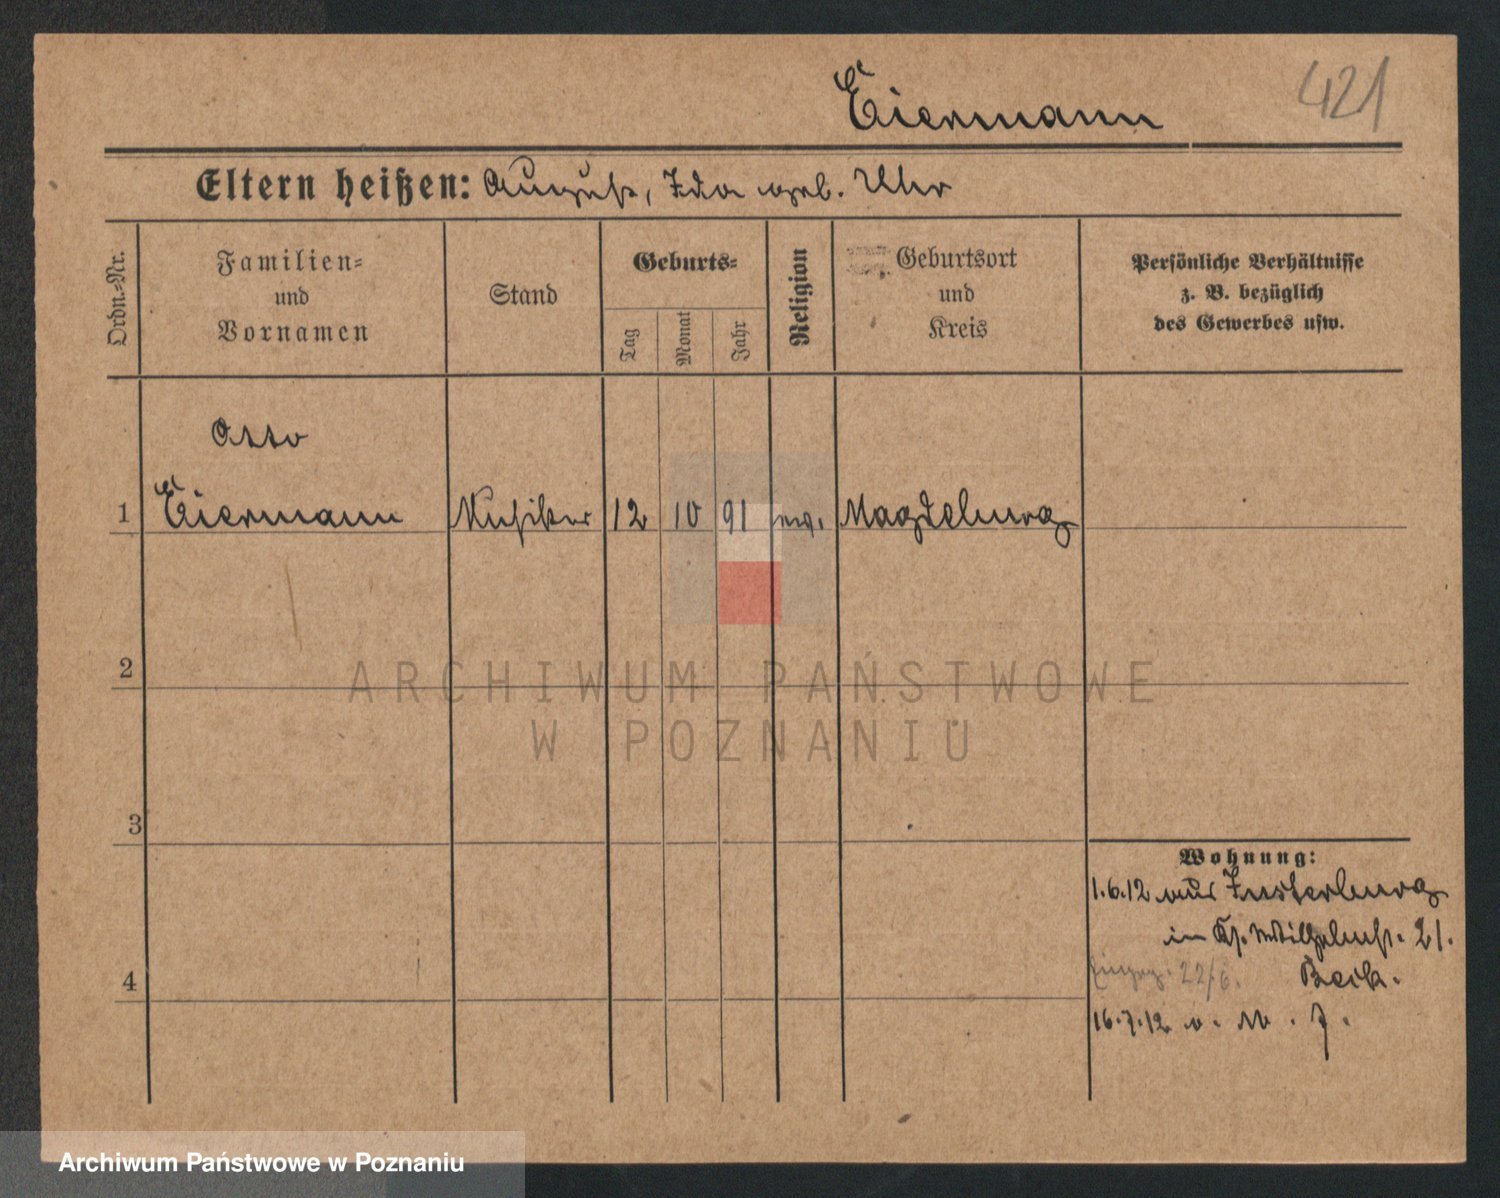 Eiermann
421
Eltern heißen: August, Ida geb. Uhr
Ordn.-Nr.
Familien-
und
Vornamen
Stand
Geburts-
Tag
Monat
Jahr
Religion
Geburtsort
und
Kreis
Persönliche Verhältnisse
z. B. bezüglich
des Gewerbes usw.
Otto
1 Eiermann Musiker 12 10 91 ev. Magdeburg
2
ARCHIWUM PAŃSTWOWE
W POZNANIU
3
Wohnung:
1.6.12 aus Insterburg
in Wilhelmstr. 21.
22/6. Beck.
4
16.7.12
Archiwum Państwowe w Poznaniu